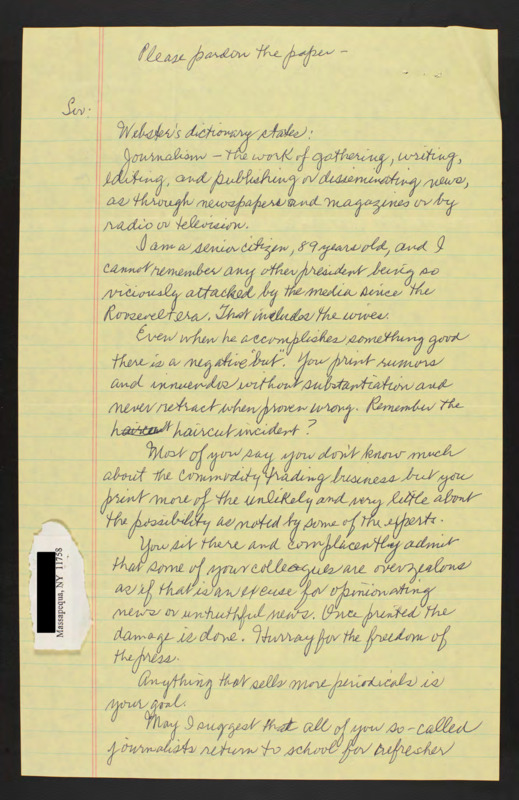 Please pardon the paper –
Sir:
Webster's dictionary states:
Journalism – the work of gathering, writing,
editing, and publishing or disseminating news,
as through newspapers and magazines or by
radio or television.
I am a senior citizen, 89 years old, and I
cannot remember any other president being so
viciously attacked by the media since the
Roosevelt era. That includes the wives.
Even when he accomplishes something good
there is a negative "but". You print rumors
and innuendos without substantiation and
never retract when proven wrong. Remember the
haircut incident?
Most of you say you don't know much
about the commodity trading business but you
print more of the unlikely and very little about
the possibility as noted by some of the experts.
You sit there and complacently admit
that some of your colleagues are overzealous
as if that is an excuse for opinionating
news or untruthful news. Once printed the
damage is done. Hurray for the freedom of
the press.
Anything that sells more periodicals is
your goal.
May I suggest that all of you so-called
journalists return to school for refresher
Massapequa, NY 11758